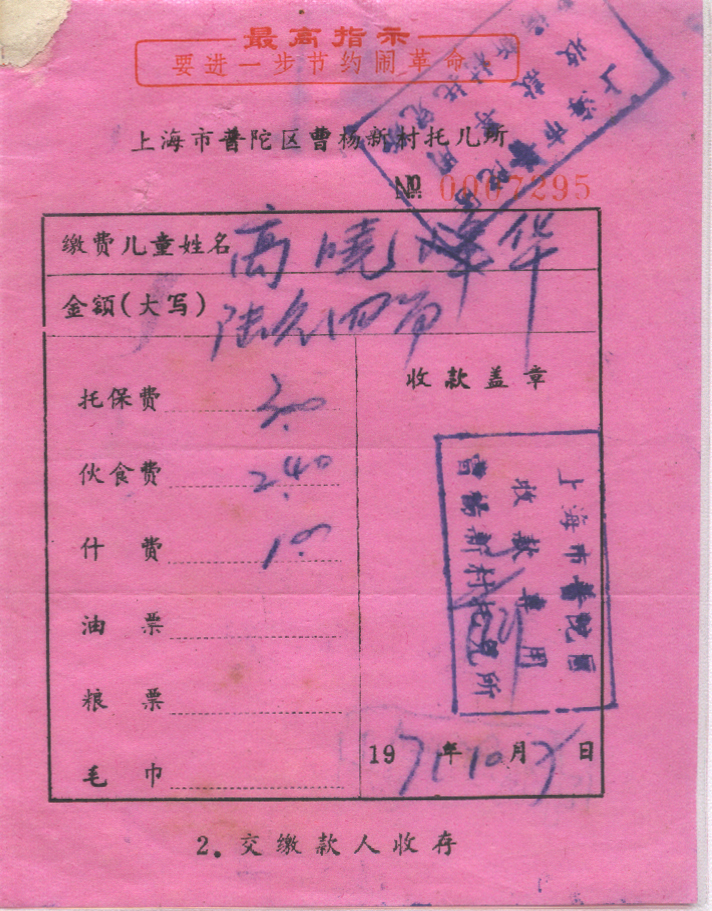 最高指示
要进一步节约闹革命
上海市普陀区曹杨新村托儿所
№ 0007295
缴费儿童姓名 高曉 华
金额(大写) 陆元四角
托保费 3.00
伙食费 2.40
什费 1.00
油票
粮票
毛巾
收款盖章
上海市普陀区
收款专用
曹杨新村托儿所
上海市普陀区
收款专用
曹杨新村托儿所
1971年10月 日
2. 交缴款人收存